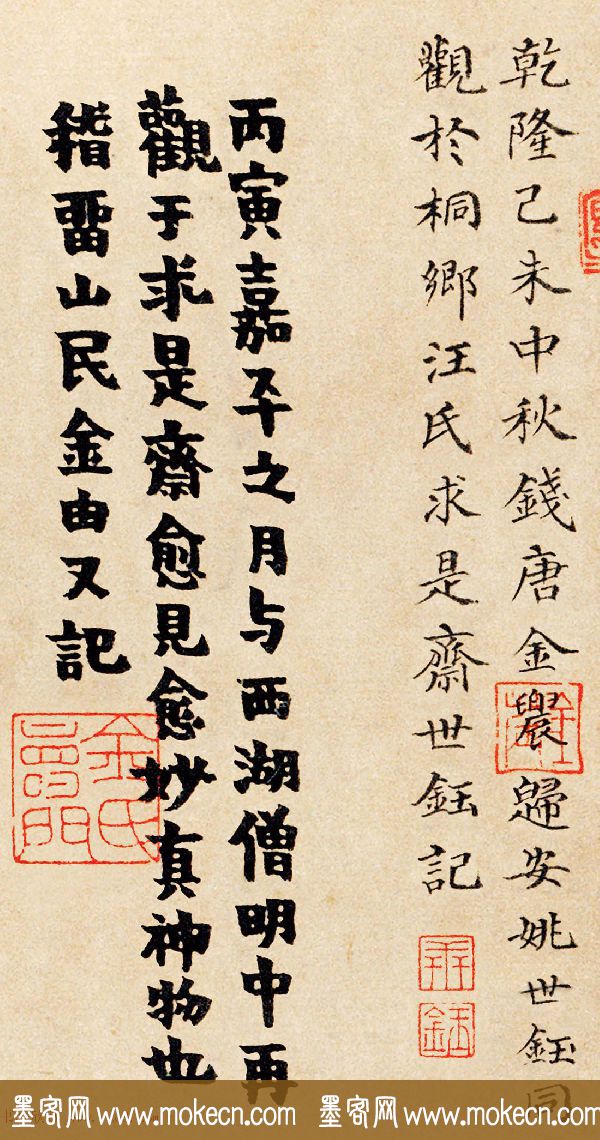 乾隆己未中秋錢唐金農歸安姚世鈺同
觀於桐鄉汪氏求是齋世鈺記
丙寅嘉平之月与西湖僧明中再
觀于求是齋愈見愈妙真神物也
稽畱山民金由又記
金氏
世鈺
墨客网 www.mokecn.com 墨客网 www.mokecn.com